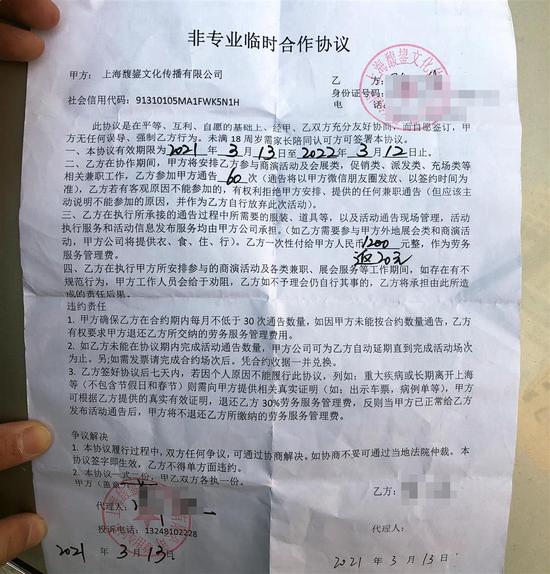 非专业临时合作协议
甲方：上海馥鋆文化传播有限公司
乙方：
身份证号码：
社会信用代码：91310105MA1FWK5N1H
电话
此协议是在平等、互利、自愿的基础上，经甲、乙双方充分友好协商，面自愿签订，甲
方无任何误导、强制乙方行为。未满18周岁需家长陪同认可方可签署本协议。
一、本协议有效期限为2021年3月13日至2022年3月12日止。
二、乙方在协作期间，甲方将安排乙方参与商演活动及会展类，促销类、派发类、充场类等
相关兼职工作，乙方参加甲方通告60次（通告将以甲方微信朋友圈发放、以签约时间为
准），乙方若有客观原因不能参加的，有权利拒绝甲方安排、提供的任何兼职通告（但应该主
动说明不能参加的原因，并作为乙方自行放弃此次活动）。
三、乙方在执行所承接的通告过程中所需要的服装、道具等，以及活动通告现场管理，活动
执行服务和活动信息发布服务均由甲方公司承担。（如乙方需要参与甲方外地展会类和商演活
动，甲方公司将提供衣、食、住、行）。乙方一次性付给甲方人民币1200元整，作为劳务
服务管理费。
返20元
四、乙方在执行甲方所安排参与的商演活动及各类兼职、展会服务等工作期间，如存在有不
规范行为，甲方工作人员会给于劝阻，乙方如不予理会仍自行其事的，乙方将承担由此所造
成的责任后果。
违约责任
1. 甲方确保乙方在合约期内每月不低于30次通告数量，如因甲方未能按合约数量通告，乙方
有权要求甲方退还乙方所交纳的劳务服务管理费用。
2. 如乙方未能在协议期内完成活动通告数量，甲方公司可为乙方自动延期直到完成活动场次
为止。另;如需发票请完成合约场次后。凭合约收据一并兑换。
3. 乙方签好协议后七天内，若因个人原因不能履行此协议，列如：重大疾病或长期离开上海
等（不包含节假日和春节）则需向甲方提供相关真实证明（如：出示车票，病例单等），甲方
可根据乙方提供的真实有效证明，退还乙方30%劳务服务管理费，反则当甲方已正常给乙方
发布活动通告后，甲方将不退还乙方所缴纳的劳务服务管理费。
争议解决
1. 本协议履行过程中，双方任何争议，可通过协商解决。如协商不妥可通过当地法院仲裁。本
协议签字即生效，乙方不得单方面违约。
2. 本协议一式一份，甲乙双方各执一份。
甲方（盖章
乙方：
代理人：
投诉电话：13248102228
代理人：
2021年3月13日
2021年3月13日